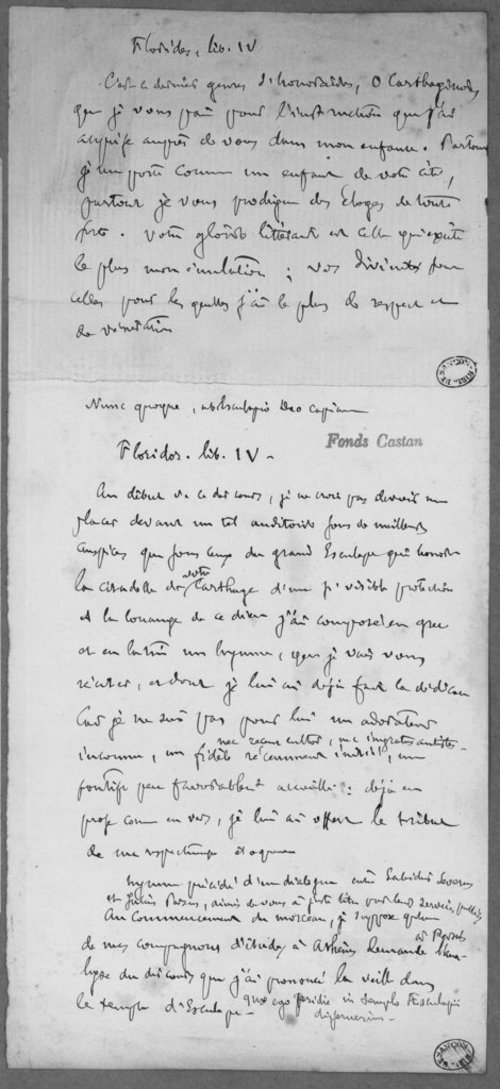 Florides, lib. IV
C'est ce dernier genre d'honoraires, O Carthaginois,
que je vous paie pour l'instruction que j'ai
acquise auprès de vous dans mon enfance. Partout
je me porte comme un enfant de votre cité,
partout je vous prodigue des Eloges de toute
sorte. Votre gloire littéraire est celle qui excite
le plus mon émulation ; vos divinités sont
celles pour les quelles j'ai le plus de respect et
de vénération
BESANÇON
Nunc quoque, ab Esculapio Deo capiam
Fonds Castan
Florides. lib. IV -
Au début de ce discours, je ne crois pas devoir me
placer devant un tel auditoire sous de meilleurs
auspices que sous ceux du grand Esculape qui honore
la citadelle de votre Carthage d'une si visible protection
et la louange de ce dieu j'ai composé en grec
et en latin un hymne, que je vais vous
réciter, et dont je lui ai déjà fait la dédicace
Car je ne suis pas pour lui un adorateur
nec recens cultor, nec ingratus antistes -
inconnu, un fidèle récemment initié, un
pontife peu favorablement accueilli : déjà en
prose comme en vers, je lui ai offert le tribut
de ma respectueuse éloquence
hymne précédé d'un dialogue entre Sabidius Severus
et Julius Persius, aimés de vous à juste titre pour leurs services publics
Au commencement du morceau, je suppose qu'un
de mes compagnons d'études à Athènes demande
à Persius
l'analyse du discours que j'ai prononcé la veille dans
le temple d'Esculape - quae ego pridie in templo Æsculapii
disseruerim -
BESANÇON